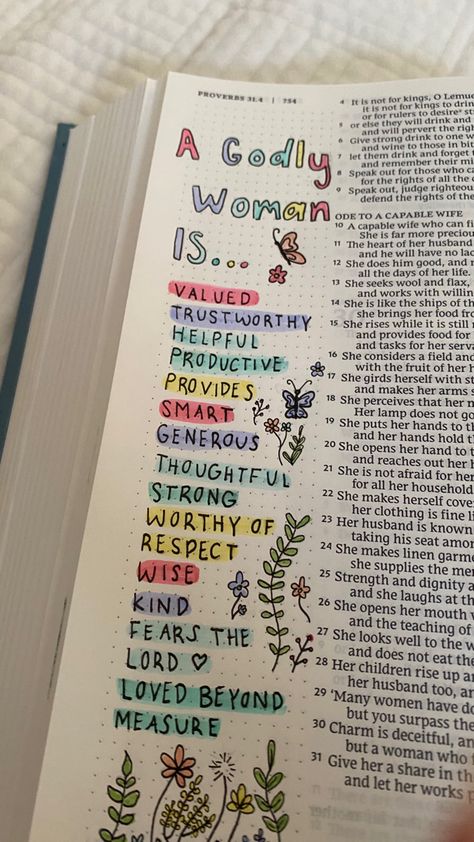 PROVERBS 31:4 | 754
A Godly
Woman
Is...
VALUED
TRUSTWORTHY
HELPFUL
PRODUCTIVE
PROVIDES
SMART
GENEROUS
THOUGHTFUL
STRONG
WORTHY OF
RESPECT
WISE
KIND
FEARS THE
LORD ♡
LOVED BEYOND
MEASURE
4 It is not for kings, O Lemue
it is not for kings to drin
or for rulers to desire
5 or else they will drink and
and will pervert the righ
6 Give strong drink to one w
and wine to those in bit
7 let them drink and forget t
and remember their mi
8 Speak out for those who ca
for the rights of all the d
9 Speak out, judge righteou
defend the rights of the
ODE TO A CAPABLE WIFE
10 A capable wife who can fi
She is far more preciou
11 The heart of her husband
and he will have no lac
12 She does him good, and n
all the days of her life.
13 She seeks wool and flax,
and works with willin
14 She is like the ships of th
she brings her food fro
15 She rises while it is still n
and provides food for
and tasks for her serva
16 She considers a field and
with the fruit of her h
17 She girds herself with s
and makes her arms s
18 She perceives that her m
Her lamp does not g
19 She puts her hands to th
and her hands hold t
20 She opens her hand to t
and reaches out her h
21 She is not afraid for her
for all her household
22 She makes herself cove
her clothing is fine li
23 Her husband is known
taking his seat amon
24 She makes linen garme
she supplies the mer
25 Strength and dignity a
and she laughs at th
26 She opens her mouth w
and the teaching of
27 She looks well to the w
and does not eat the
28 Her children rise up ar
her husband too, an
29 'Many women have do
but you surpass the
30 Charm is deceitful, an
but a woman who f
31 Give her a share in th
and let her works p